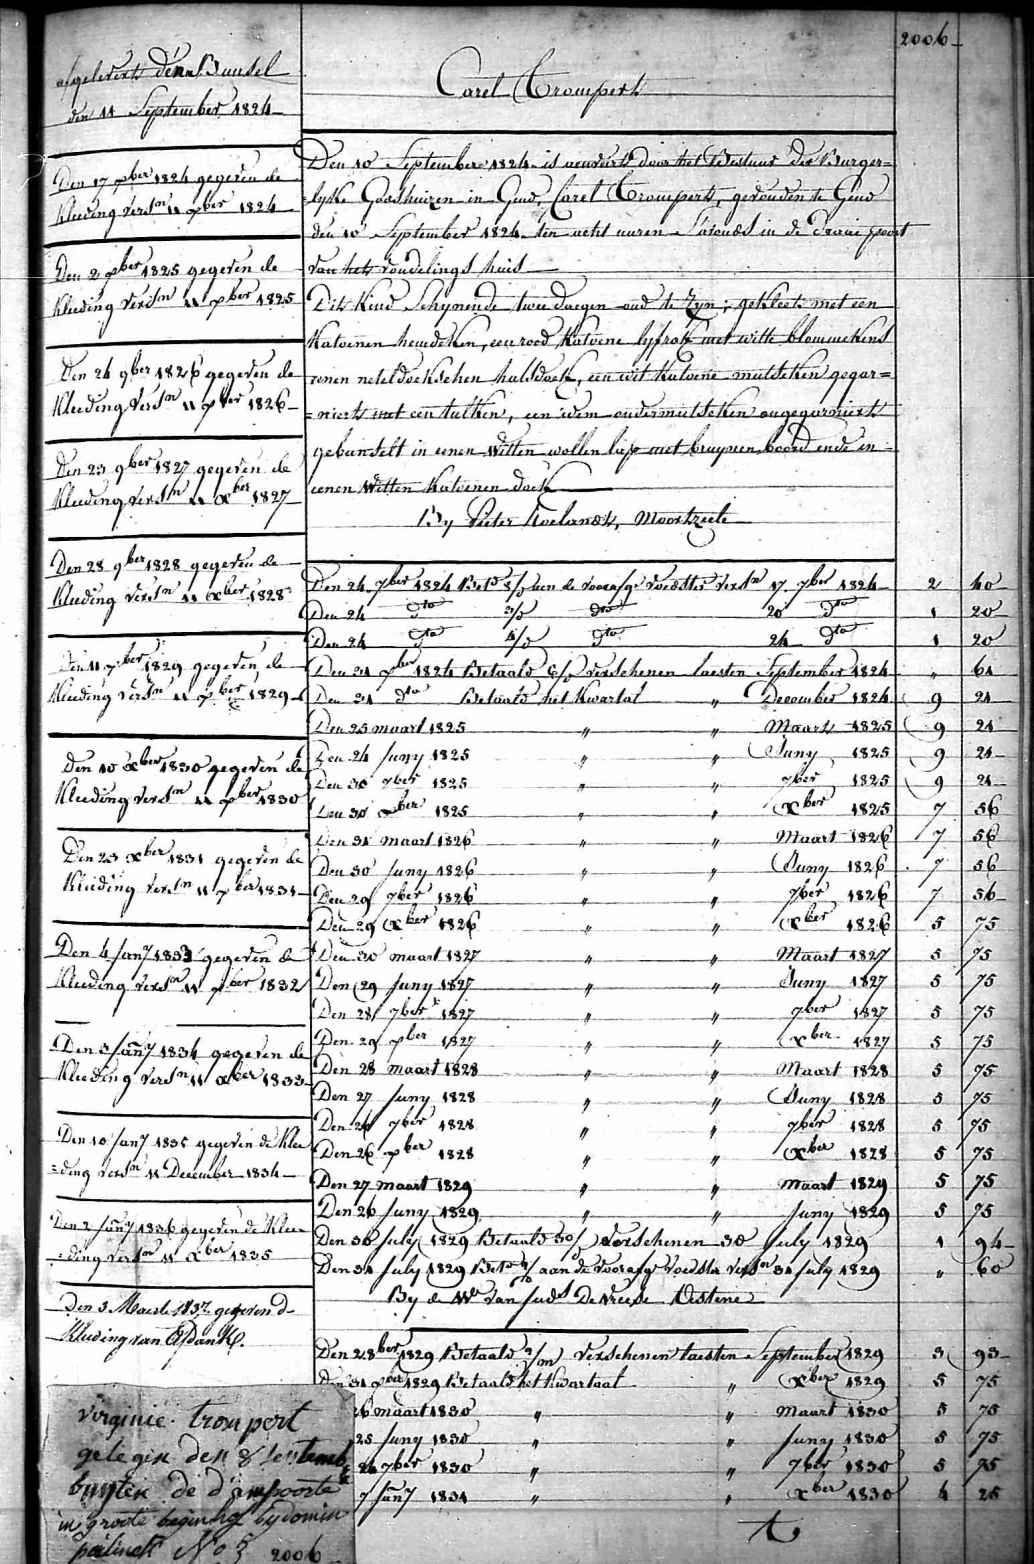 2006
Carel Trompert
afgelevert den Bunsel
den 11 September 1824
Den 17 xber 1824 gegeven de
Kleeding versn 11 xber 1824
Den 2 xber 1825 gegeven de
Kleeding versn 11 xber 1825
Den 24 9ber 1826 gegeven de
Kleeding versn 11 xber 1826
Den 23 9ber 1827 gegeven de
Kleeding versn 11 xber 1827
Den 28 9ber 1828 gegeven de
Kleeding versn 11 xber 1828
Den 11 xber 1829 gegeven de
Kleeding versn 11 xber 1829
Den 10 xber 1830 gegeven de
Kleeding versn 11 xber 1830
Den 23 xber 1831 gegeven de
Kleeding versn 11 xber 1831
Den 4 Jany 1833 gegeven de
Kleeding versn 11 xber 1832
Den 3 Jany 1834 gegeven de
Kleeding versn 11 xber 1833
Den 10 Jany 1835 gegeven de Klee
=ding versn 11 December 1834
Den 2 Jany 1836 gegeven de Klee
=ding versn 11 xber 1835
Den 3 Maerte 1837 gegeven d
Kleeding van
Den 10 September 1824 is aenveird door het Bestuur der Burger=
lyke Godshuizen in Gend, Carel Trompert, gevonden te Gend
den 10 September 1824 ten acht uuren S'avonds in de Draai poort
van het vondelings huis
Dit Kind Schynende twee daegen oud te Zyn; gekleet met een
Katoenen hemdeken, een rood Katoene lyfrok met witte blommekens
eenen neteldoekschen halsdoek, een wit katoene mutseken gegar=
=niert met een tulken, een idem ondermutseken ongegarniert
gebunselt in eenen Witten wollen liep met bruynen boord ende in
eenen Witten Katoenen doek
By Pieter Roelandt, Moortzeele
Den 24 7ber 1824 Betd aen de voorsz voedster versn 17 7ber 1824 2 40
Den 24 dto dto 20 dto 1 20
Den 24 dto dto 24 dto 1 20
Den 31 xber 1824 Betaald verschenen laesten September 1824 " 64
Den 31 dto Betaald het Kwartal " December 1824 9 24
Den 25 maart 1825 " " Maart 1825 9 24
Den 24 Juny 1825 " " Juny 1825 9 24
Den 30 7ber 1825 " " 7ber 1825 9 24
Den 30 xber 1825 " " xber 1825 7 56
Den 31 maart 1826 " " Maart 1826 7 56
Den 30 Juny 1826 " " Juny 1826 7 56
Den 29 7ber 1826 " " 7ber 1826 7 56
Den 29 xber 1826 " " xber 1826 5 75
Den 30 maart 1827 " " Maart 1827 5 75
Den 29 Juny 1827 " " Juny 1827 5 75
Den 28 7ber 1827 " " 7ber 1827 5 75
Den 29 xber 1827 " " xber 1827 5 75
Den 28 maart 1828 " " Maart 1828 5 75
Den 27 Juny 1828 " " Juny 1828 5 75
Den 26 7ber 1828 " " 7ber 1828 5 75
Den 26 xber 1828 " " xber 1828 5 75
Den 27 maart 1829 " " maart 1829 5 75
Den 26 Juny 1829 " " Juny 1829 5 75
Den 30 July 1829 Betaald verschenen 30 July 1829 1 94
Den 31 July 1829 Betd aan de voorsz voedster versn 31 July 1829 " 60
By de We van Juds De Vreese Oostene
Den 2 8ber 1829 Betaald verschenen laesten September 1829 3 93
Den 31 xber 1829 Betaald het Kwartaal " xber 1829 5 75
26 maart 1830 " " Maart 1830 5 75
25 Juny 1830 " " Juny 1830 5 75
24 7ber 1830 " " 7ber 1830 5 75
7 Jany 1831 " " xber 1830 4 25
virginie trompert
gelegin den 8 Septemb
buyten de dampoorte
in groote beginhof by domin
palinck No 5 2006